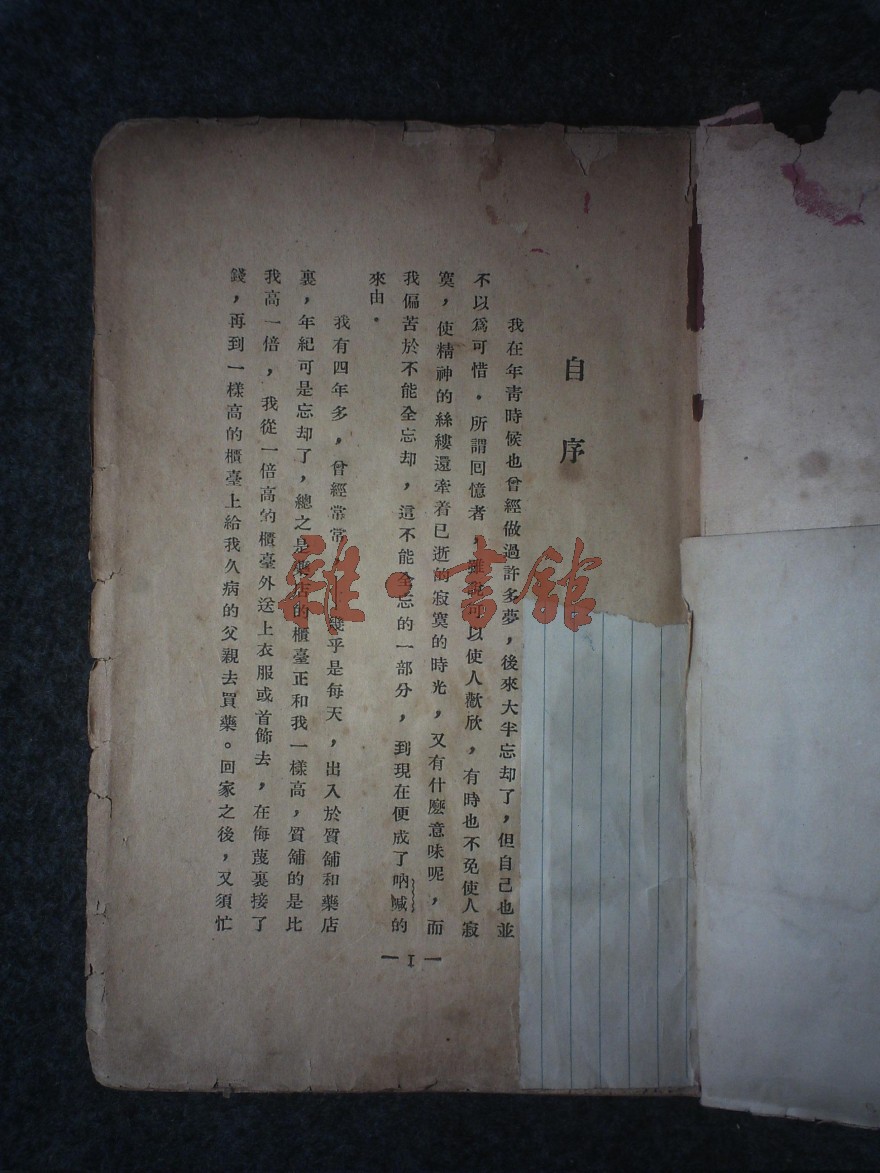 自序
我在年靑時候也曾經做過許多夢，後來大半忘却了，但自己也並
不以爲可惜．所謂回憶者，雖說可以使人歡欣，有時也不免使人寂
寞，使精神的絲縷還牽着已逝的寂寞的時光，又有什麽意味呢，而
我偏苦於不能全忘却，這不能全忘的一部分，到現在便成了吶喊的
來由．
我有四年多，曾經常常，幾乎是每天，出入於質舖和藥店
裏，年紀可是忘却了，總之是藥店的櫃臺正和我一樣高，質舖的是比
我高一倍，我從一倍高的櫃臺外送上衣服或首飾去，在侮蔑裏接了
錢，再到一樣高的櫃臺上給我久病的父親去買藥。回家之後，又須忙
— I —
雜·書館